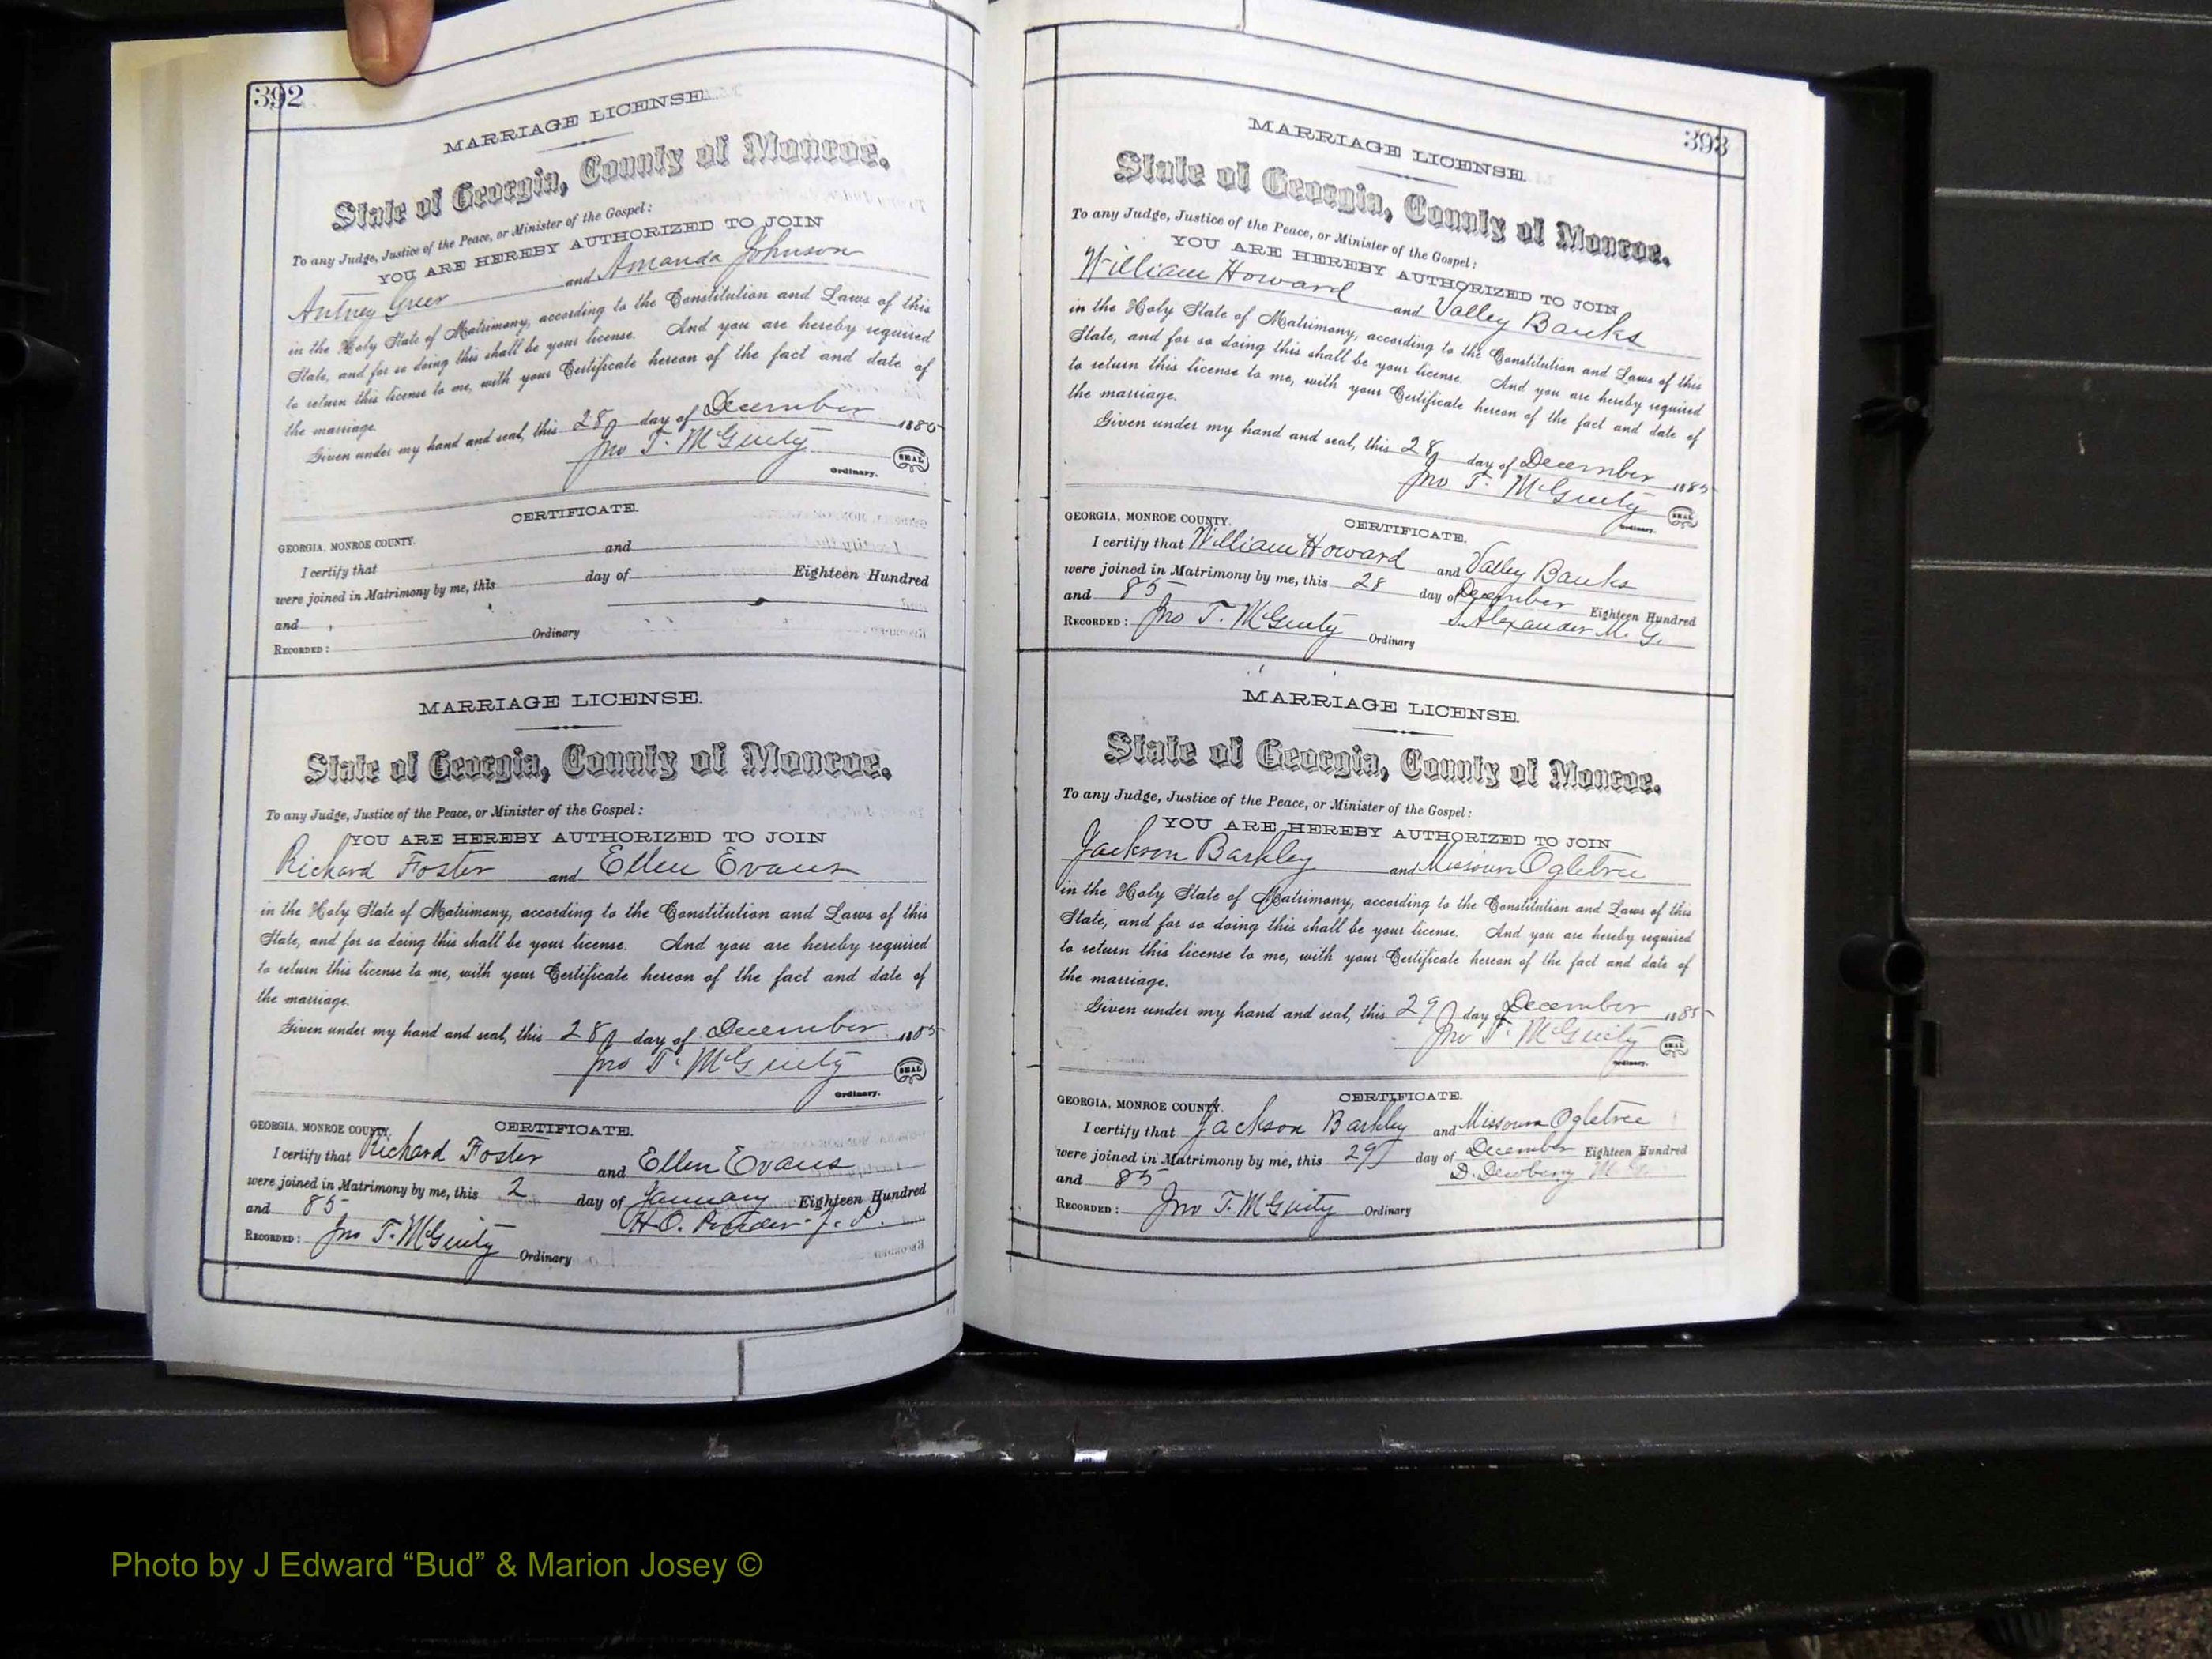 392
MARRIAGE LICENSE.
State of Georgia, County of Monroe.
To any Judge, Justice of the Peace, or Minister of the Gospel:
YOU ARE HEREBY AUTHORIZED TO JOIN
Antney Greer and Amanda Johnson
in the Holy State of Matrimony, according to the Constitution and Laws of this
State, and for so doing this shall be your license. And you are hereby required
to return this license to me, with your Certificate hereon of the fact and date of
the marriage.
Given under my hand and seal, this 28 day of December 1885
Jno T. McGinty
SEAL
Ordinary.
CERTIFICATE.
GEORGIA, MONROE COUNTY.
I certify that and
were joined in Matrimony by me, this day of Eighteen Hundred
and
RECORDED: Ordinary
MARRIAGE LICENSE.
State of Georgia, County of Monroe.
To any Judge, Justice of the Peace, or Minister of the Gospel:
YOU ARE HEREBY AUTHORIZED TO JOIN
Richard Foster and Ellen Evans
in the Holy State of Matrimony, according to the Constitution and Laws of this
State, and for so doing this shall be your license. And you are hereby required
to return this license to me, with your Certificate hereon of the fact and date of
the marriage.
Given under my hand and seal, this 28 day of December 1885
Jno T. McGinty
SEAL
Ordinary.
CERTIFICATE.
GEORGIA, MONROE COUNTY.
I certify that Richard Foster and Ellen Evans
were joined in Matrimony by me, this 2 day of January Eighteen Hundred
and 85 H.O. J.P.
RECORDED: Jno T. McGinty Ordinary
393
MARRIAGE LICENSE.
State of Georgia, County of Monroe.
To any Judge, Justice of the Peace, or Minister of the Gospel:
YOU ARE HEREBY AUTHORIZED TO JOIN
William Howard and Valley Banks
in the Holy State of Matrimony, according to the Constitution and Laws of this
State, and for so doing this shall be your license. And you are hereby required
to return this license to me, with your Certificate hereon of the fact and date of
the marriage.
Given under my hand and seal, this 28 day of December 1885
Jno T. McGinty
SEAL
Ordinary.
CERTIFICATE.
GEORGIA, MONROE COUNTY.
I certify that William Howard and Valley Banks
were joined in Matrimony by me, this 28 day of December Eighteen Hundred
and 85 S. Alexander M.G.
RECORDED: Jno T. McGinty Ordinary
MARRIAGE LICENSE.
State of Georgia, County of Monroe.
To any Judge, Justice of the Peace, or Minister of the Gospel:
YOU ARE HEREBY AUTHORIZED TO JOIN
Jackson Barkley and Missouri Ogletree
in the Holy State of Matrimony, according to the Constitution and Laws of this
State, and for so doing this shall be your license. And you are hereby required
to return this license to me, with your Certificate hereon of the fact and date of
the marriage.
Given under my hand and seal, this 29 day of December 1885
Jno T. McGinty
SEAL
Ordinary.
CERTIFICATE.
GEORGIA, MONROE COUNTY.
I certify that Jackson Barkley and Missouri Ogletree
were joined in Matrimony by me, this 29 day of December Eighteen Hundred
and 85 D. Dewberry M.G.
RECORDED: Jno T. McGinty Ordinary
Photo by J Edward “Bud” & Marion Josey ©